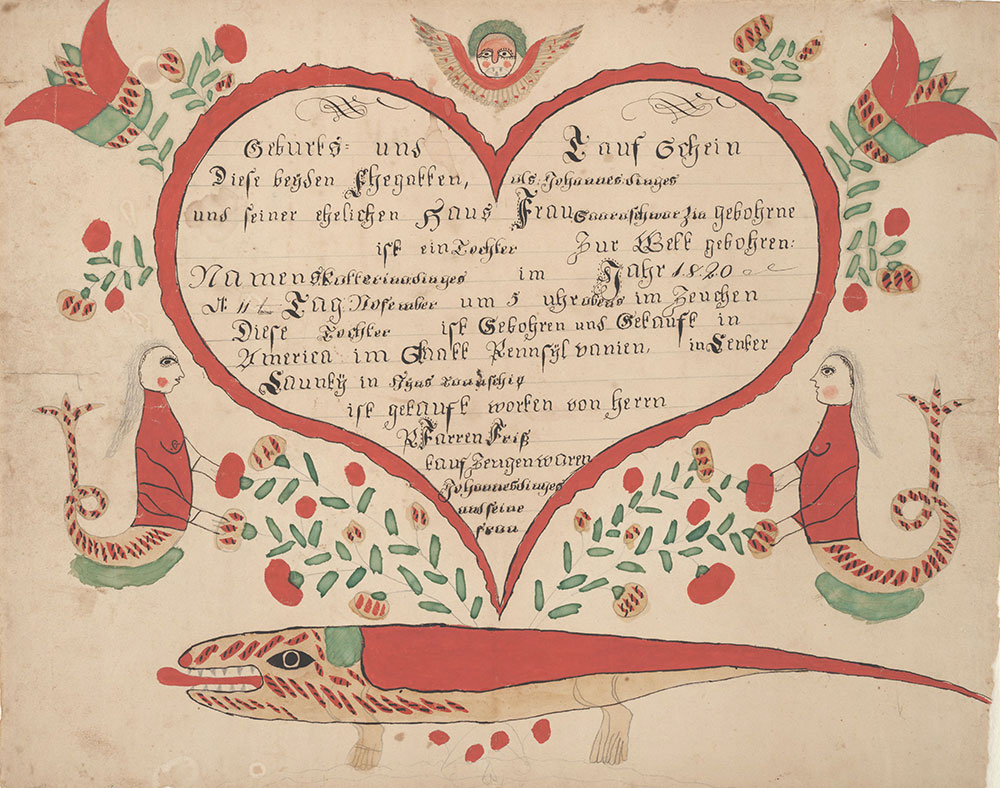 Geburts= und Tauf Schein
Diese beyden Ehegatten, als Johannes dinges
und seiner ehelichen Haus Frau Saara schwarzin gebohrne
ist ein Tochter Zur Welt gebohren:
Namens Katterina dinges im Jahr 1820
d 11 Tag Nofember um 5 uhr abens im Zeuchen
Diese Tochter ist Gebohren und Getauft in
America im Staatt Pennsylvanien, in Center
Caunty in Hyns Taunschip
ist getauft worten von Herrn
Pfarren Friß
tauf Zeugen waren
Johannes dinges
und seine
frau